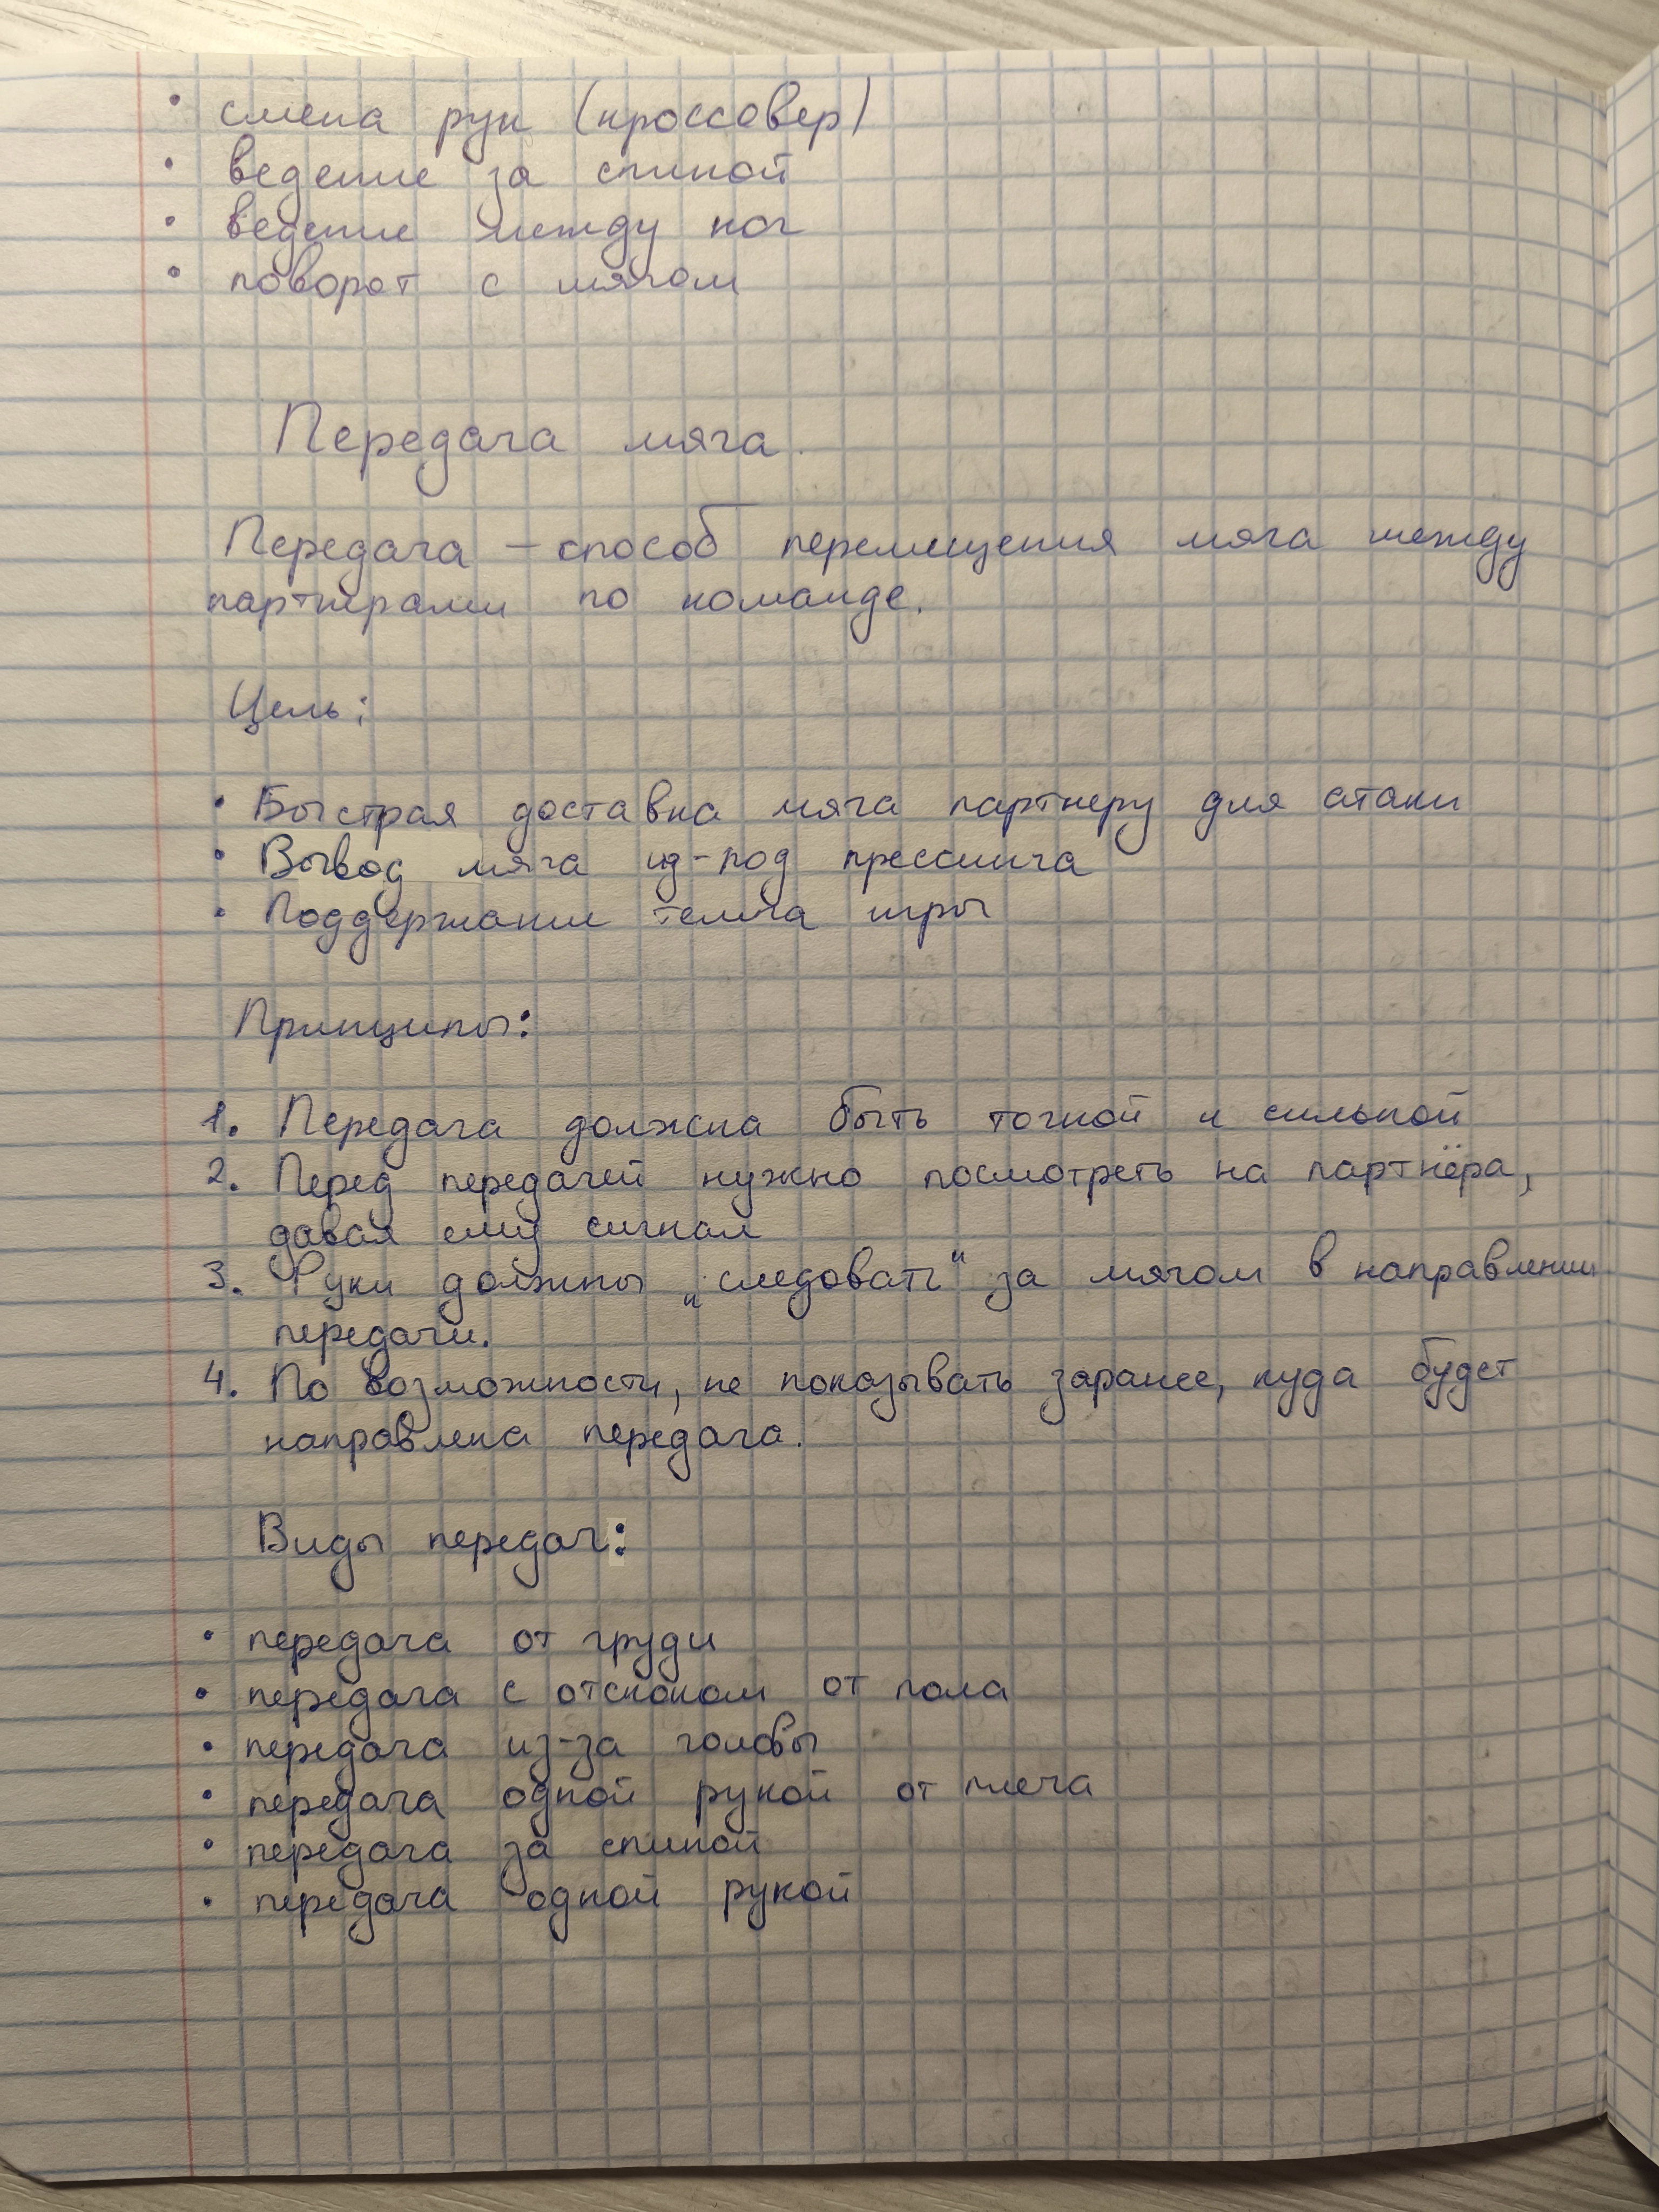 • смена рук (кроссовер)
• ведение за спиной
• ведение между ног
• поворот с мячом
Передача мяча.
Передача – способ перемещения мяча между
партнерами по команде.
Цель:
• Быстрая доставка мяча партнеру для атаки
• Вывод мяча из-под прессинга
• Поддержание темпа игры
Принципы:
1. Передача должна быть точной и сильной
2. Перед передачей нужно посмотреть на партнёра,
давая ему сигнал
3. Руки должны „следовать“ за мячом в направлении
передачи.
4. По возможности, не показывать заранее, куда будет
направлена передача.
Виды передач:
• передача от груди
• передача с отскоком от пола
• передача из-за головы
• передача одной рукой от плеча
• передача за спиной
• передача одной рукой